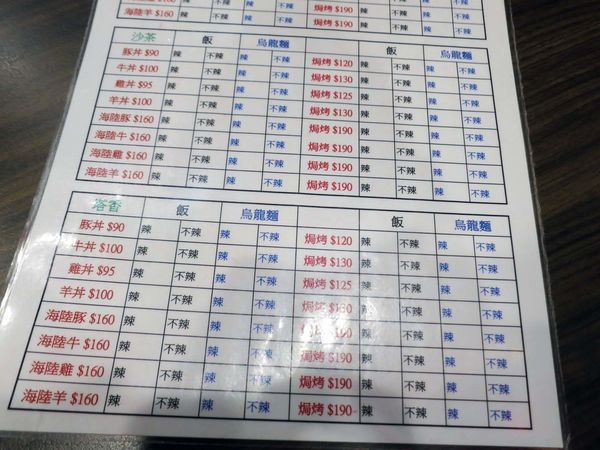 $160 辣 不辣 辣 不辣 $190 辣 不辣 辣 不辣
海陸羊 $160 辣 不辣 辣 不辣 焗烤 $190 辣 不辣 辣 不辣
沙茶 飯 烏龍麵 飯 烏龍麵
豚丼 $90 辣 不辣 辣 不辣 焗烤 $120 辣 不辣 辣 不辣
牛丼 $100 辣 不辣 辣 不辣 焗烤 $130 辣 不辣 辣 不辣
雞丼 $95 辣 不辣 辣 不辣 焗烤 $125 辣 不辣 辣 不辣
羊丼 $100 辣 不辣 辣 不辣 焗烤 $130 辣 不辣 辣 不辣
海陸豚 $160 辣 不辣 辣 不辣 焗烤 $190 辣 不辣 辣 不辣
海陸牛 $160 辣 不辣 辣 不辣 焗烤 $190 辣 不辣 辣 不辣
海陸雞 $160 辣 不辣 辣 不辣 焗烤 $190 辣 不辣 辣 不辣
海陸羊 $160 辣 不辣 辣 不辣 焗烤 $190 辣 不辣 辣 不辣
塔香 飯 烏龍麵 飯 烏龍麵
豚丼 $90 辣 不辣 辣 不辣 焗烤 $120 辣 不辣 辣 不辣
牛丼 $100 辣 不辣 辣 不辣 焗烤 $130 辣 不辣 辣 不辣
雞丼 $95 辣 不辣 辣 不辣 焗烤 $125 辣 不辣 辣 不辣
羊丼 $100 辣 不辣 辣 不辣 焗烤 $130 辣 不辣 辣 不辣
海陸豚 $160 辣 不辣 辣 不辣 $190 辣 不辣 辣 不辣
海陸牛 $160 辣 不辣 辣 不辣 焗烤 $190 辣 不辣 辣 不辣
海陸雞 $160 辣 不辣 辣 不辣 焗烤 $190 辣 不辣 辣 不辣
海陸羊 $160 辣 不辣 辣 不辣 焗烤 $190 辣 不辣 辣 不辣